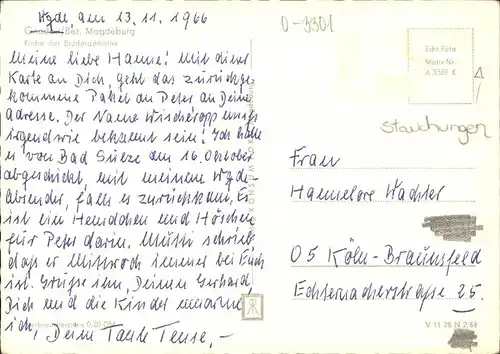 Wgde, am 13. 11. 1966
Gnadau/Bez. Magdeburg
Kirche der Brüdergemeine
Meine liebe Hanne! Mit dieser
Karte an Dich, geht das zurückge-
kommene Paket an Peter an Deine
Adresse. Der Name Wischeropp muß
irgendwie bekannt sein! Ich habe
es von Bad Sülze am 16. Oktober
abgeschickt, mit meinem Wgde
absender, falls es zurückkam. Es
ist ein Hemdchen und Höschen
für Peter darin. Mutti schrieb
daß er Mittwoch immer bei Euch
ist. Grüße ihn, Deinen Gerhard,
Dich und die Kinder umarme
ich, Deine Tante Tense,-
Verbraucherpreis 0,20 DM
0-3301
Echt Foto
Motiv Nr.
A 3359 K
Stauchungen
Frau
Hannelore Wachter
05 Köln-Braunsfeld
Echternacherstraße 25.
V 11 28 N 2/64